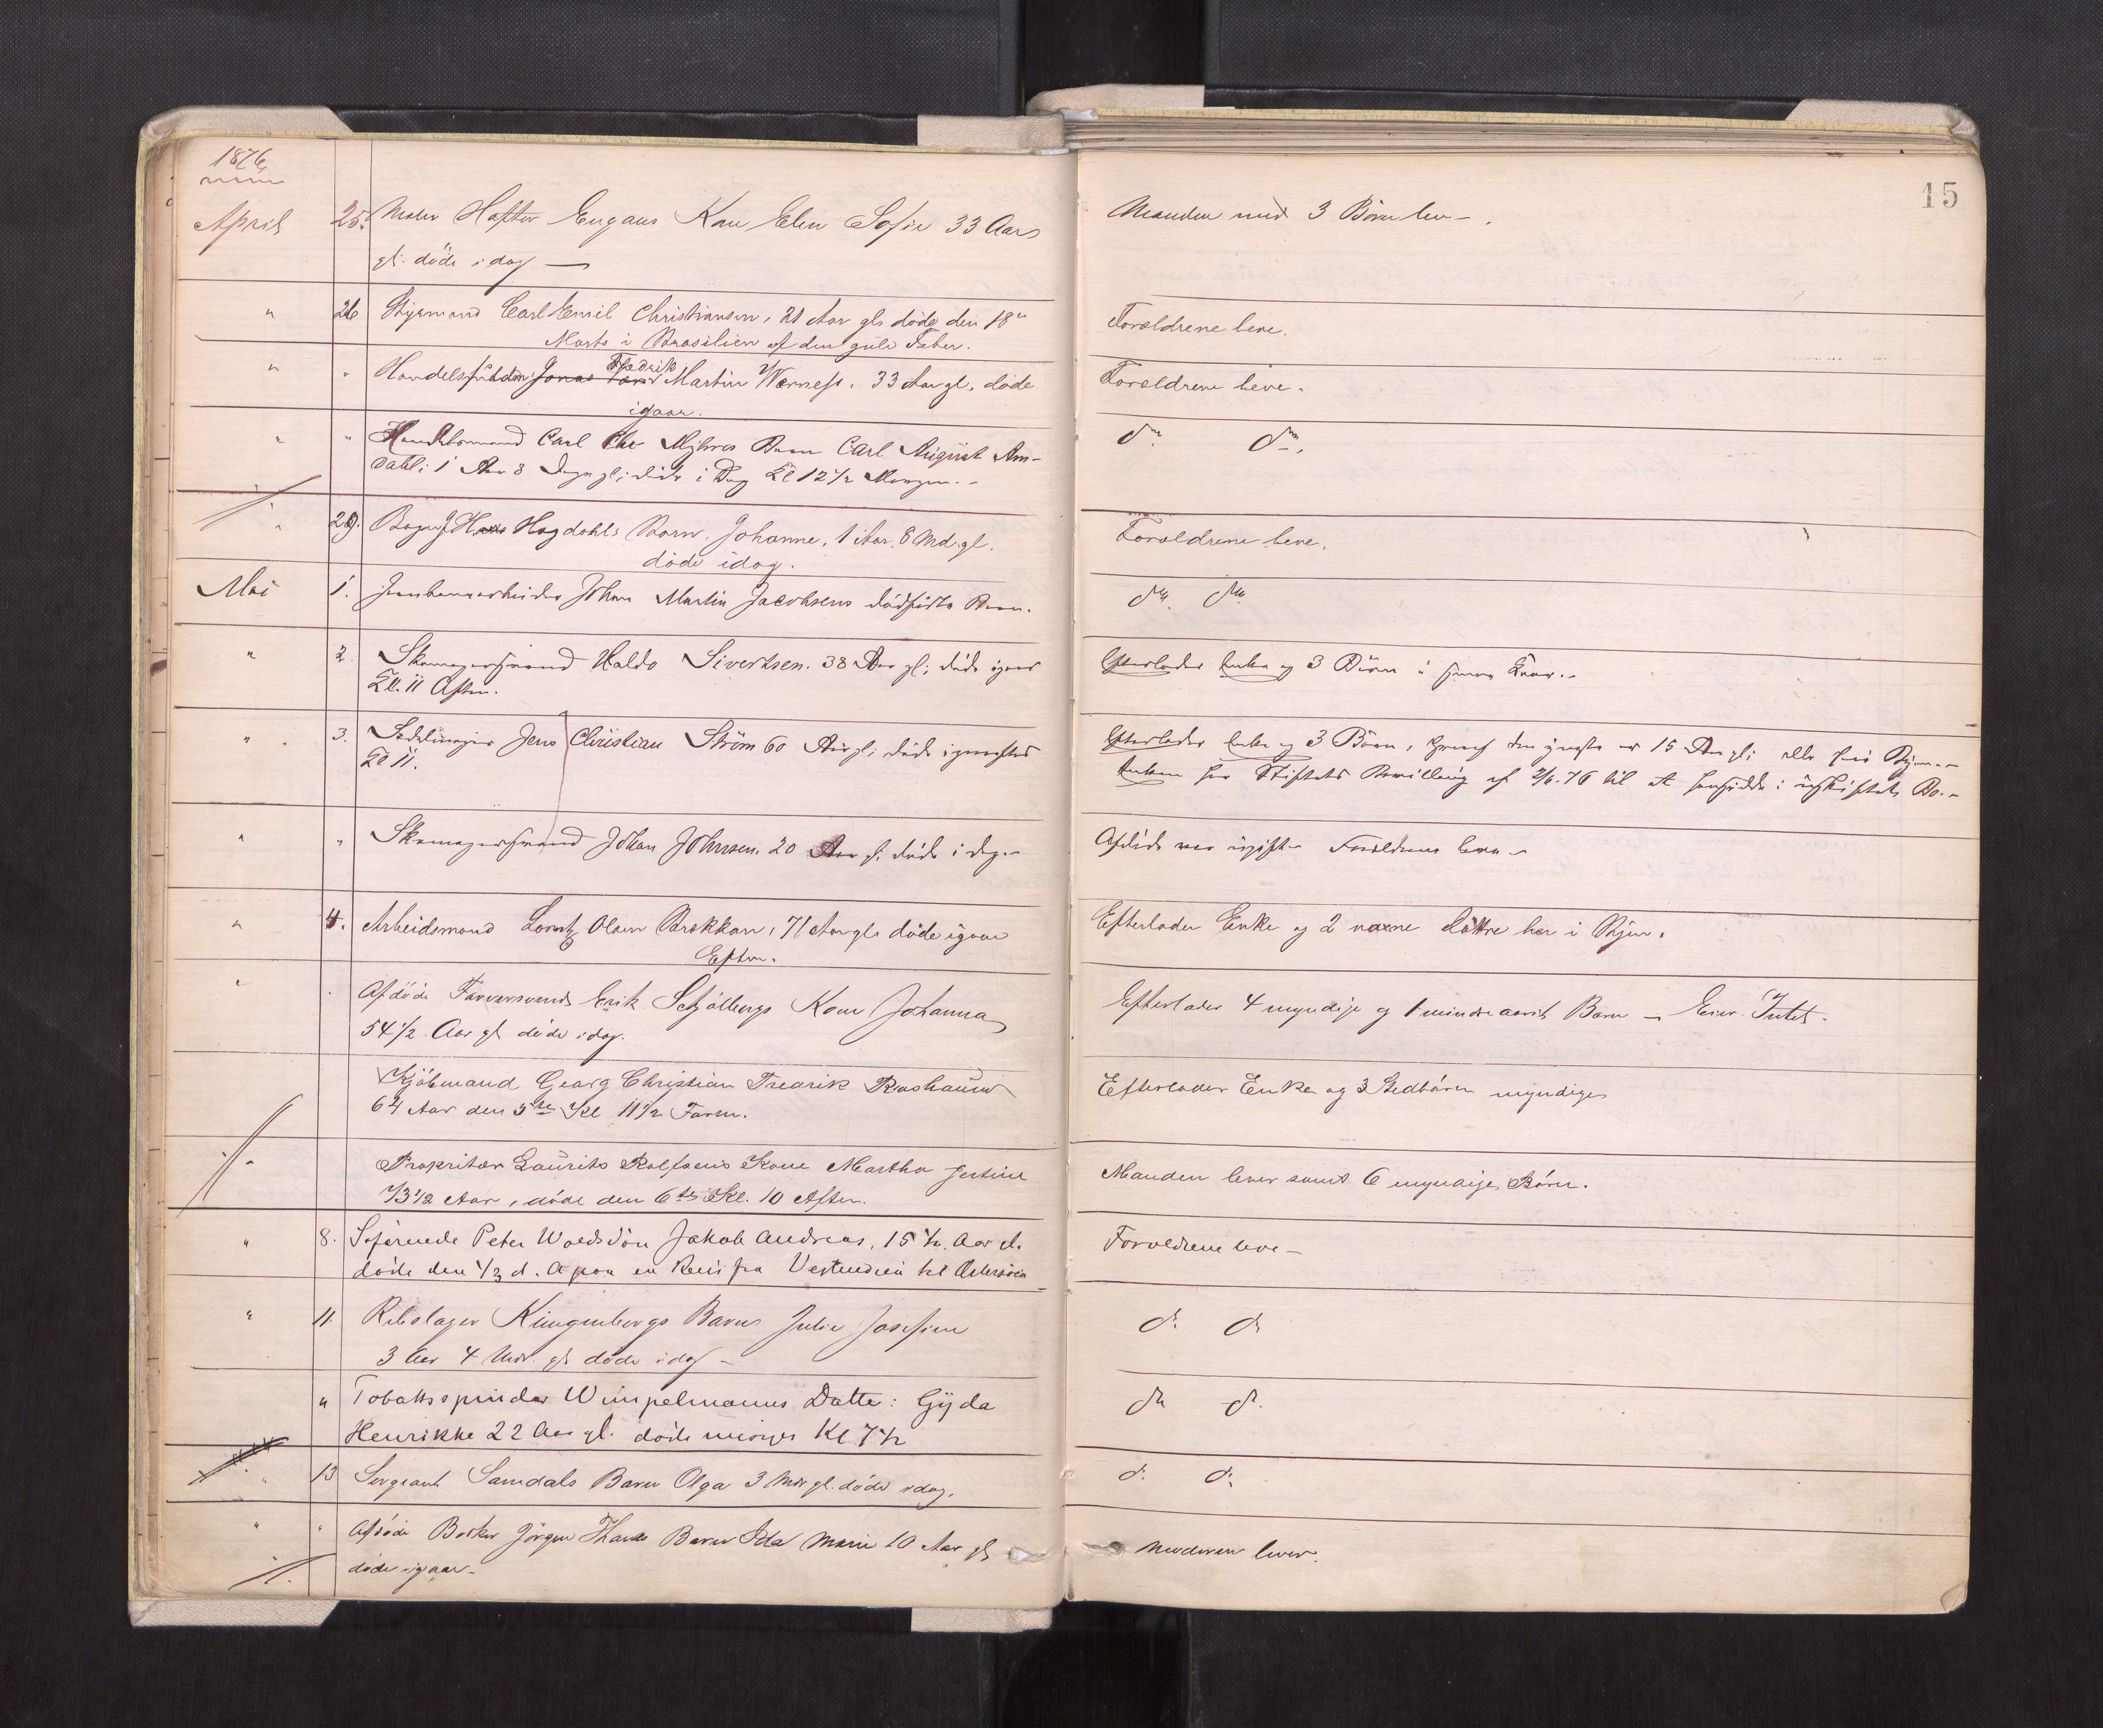 1876
15
April 25. Maler Hofter Engans Kone Elen Sofie 33 Aar
gl. døde idag —
Manden med 3 Børn lev—.
" 26 Styrmand Carl Emil Christiansen, 21 Aar gl. døde den 18"
Marts i Brasilien af den gule Feber.
Forældrene leve.
" " Fredrik
Martin Værness, 33 Aar gl. døde
igaar.
Forældrene leve.
" " Handelsmand Carl Chr Myhres Barn Carl August Am-
dahl: 1 Aar 8 Dage gl; døde i Dag Kl 12 1/2 Morgen.
do. do.
" 29. Bager J Hogdahls Barn Johanne, 1 Aar 8 Md. gl.
døde idag.
Forældrene leve.
Mai 1. Jernbanearbeider Johan Martin Jacobsens dødfødte Barn.
do. do.
" 2. Skomagersvend Haldo Sivertsen. 38 Aar gl; døde igaar
Kl. 11 Aften.
Efterlader Enke og 3 Børn i
" 3. Sadelmager Jens Christian Strøm 60 Aar gl; døde igaaraftes
Kl 11.
Efterlader Enke og 3 Børn, hvoraf den yngste er 15 Aar gl; alle
Enken har Stiftets Bevilling af 2/6.76 til at hensidde i uskiftet Bo.-
" " Skomagersvend Johan Johnsen. 20 Aar gl. døde i dag.-
Afdøde var ugift - Forældrene leve -
" 4. Arbeidsmand Lorntz Olsen Brekkan, 71 Aar gl. døde igaar
Efterm.
Efterlader Enke og 2 voxne døttre her i Byen.
" . Afdøde Farversvend Erik Schjølbergs Kone Johanna
54 1/2 Aar gl døde idag.
Efterlader 4 myndige og 1 mindreaarit Barn — Eier Intet.
Kjøbmand Georg Christian Fredrik
64 Aar den 5te Kl 11 1/2 Form.
Efterlader Enke og 3 Stedbørn myndige
" Propritær Laurits Rolfsens Kone Martha
73 1/2 Aar, døde den 6te Kl. 10 Aften.
Manden lever samt 6 myndige Børn.
" 8. Søfarende Peter Woldsdøn Jakob Andreas, 15 1/2 Aar gl.
døde den 1/3 d. A paa en Reis fra Vestindien til Østersøen
Forældrene leve —
" 11. Rebslager Klingenbergs Barn Julie Josefine
3 Aar 4 Mdr. gl døde idag —
do do
" Tobakksspinder Wimpelmanns Datter: Gyda
Henrikke 22 Aar gl. døde imorges Kl 7 1/2
do do.
" 13 Sergeant Samdals Barn Olga 3 Mdr gl. døde idag.
do. do.
" " Afdøde Bødker Jørgen Barn Ida Marie 10 Aar gl
døde igaar—
Moderen lever.